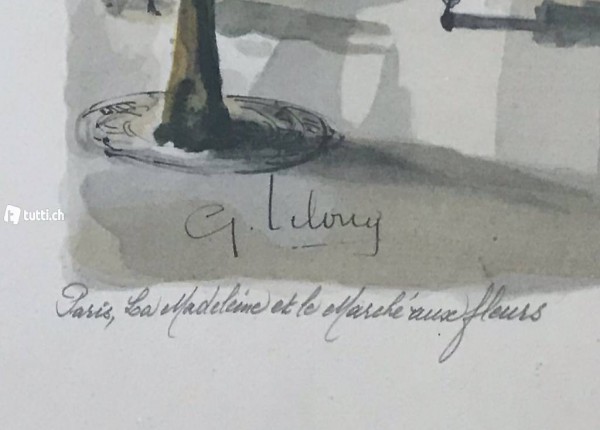 tutti.ch
G. Lelong
Paris, La Madeleine et le Marché aux fleurs